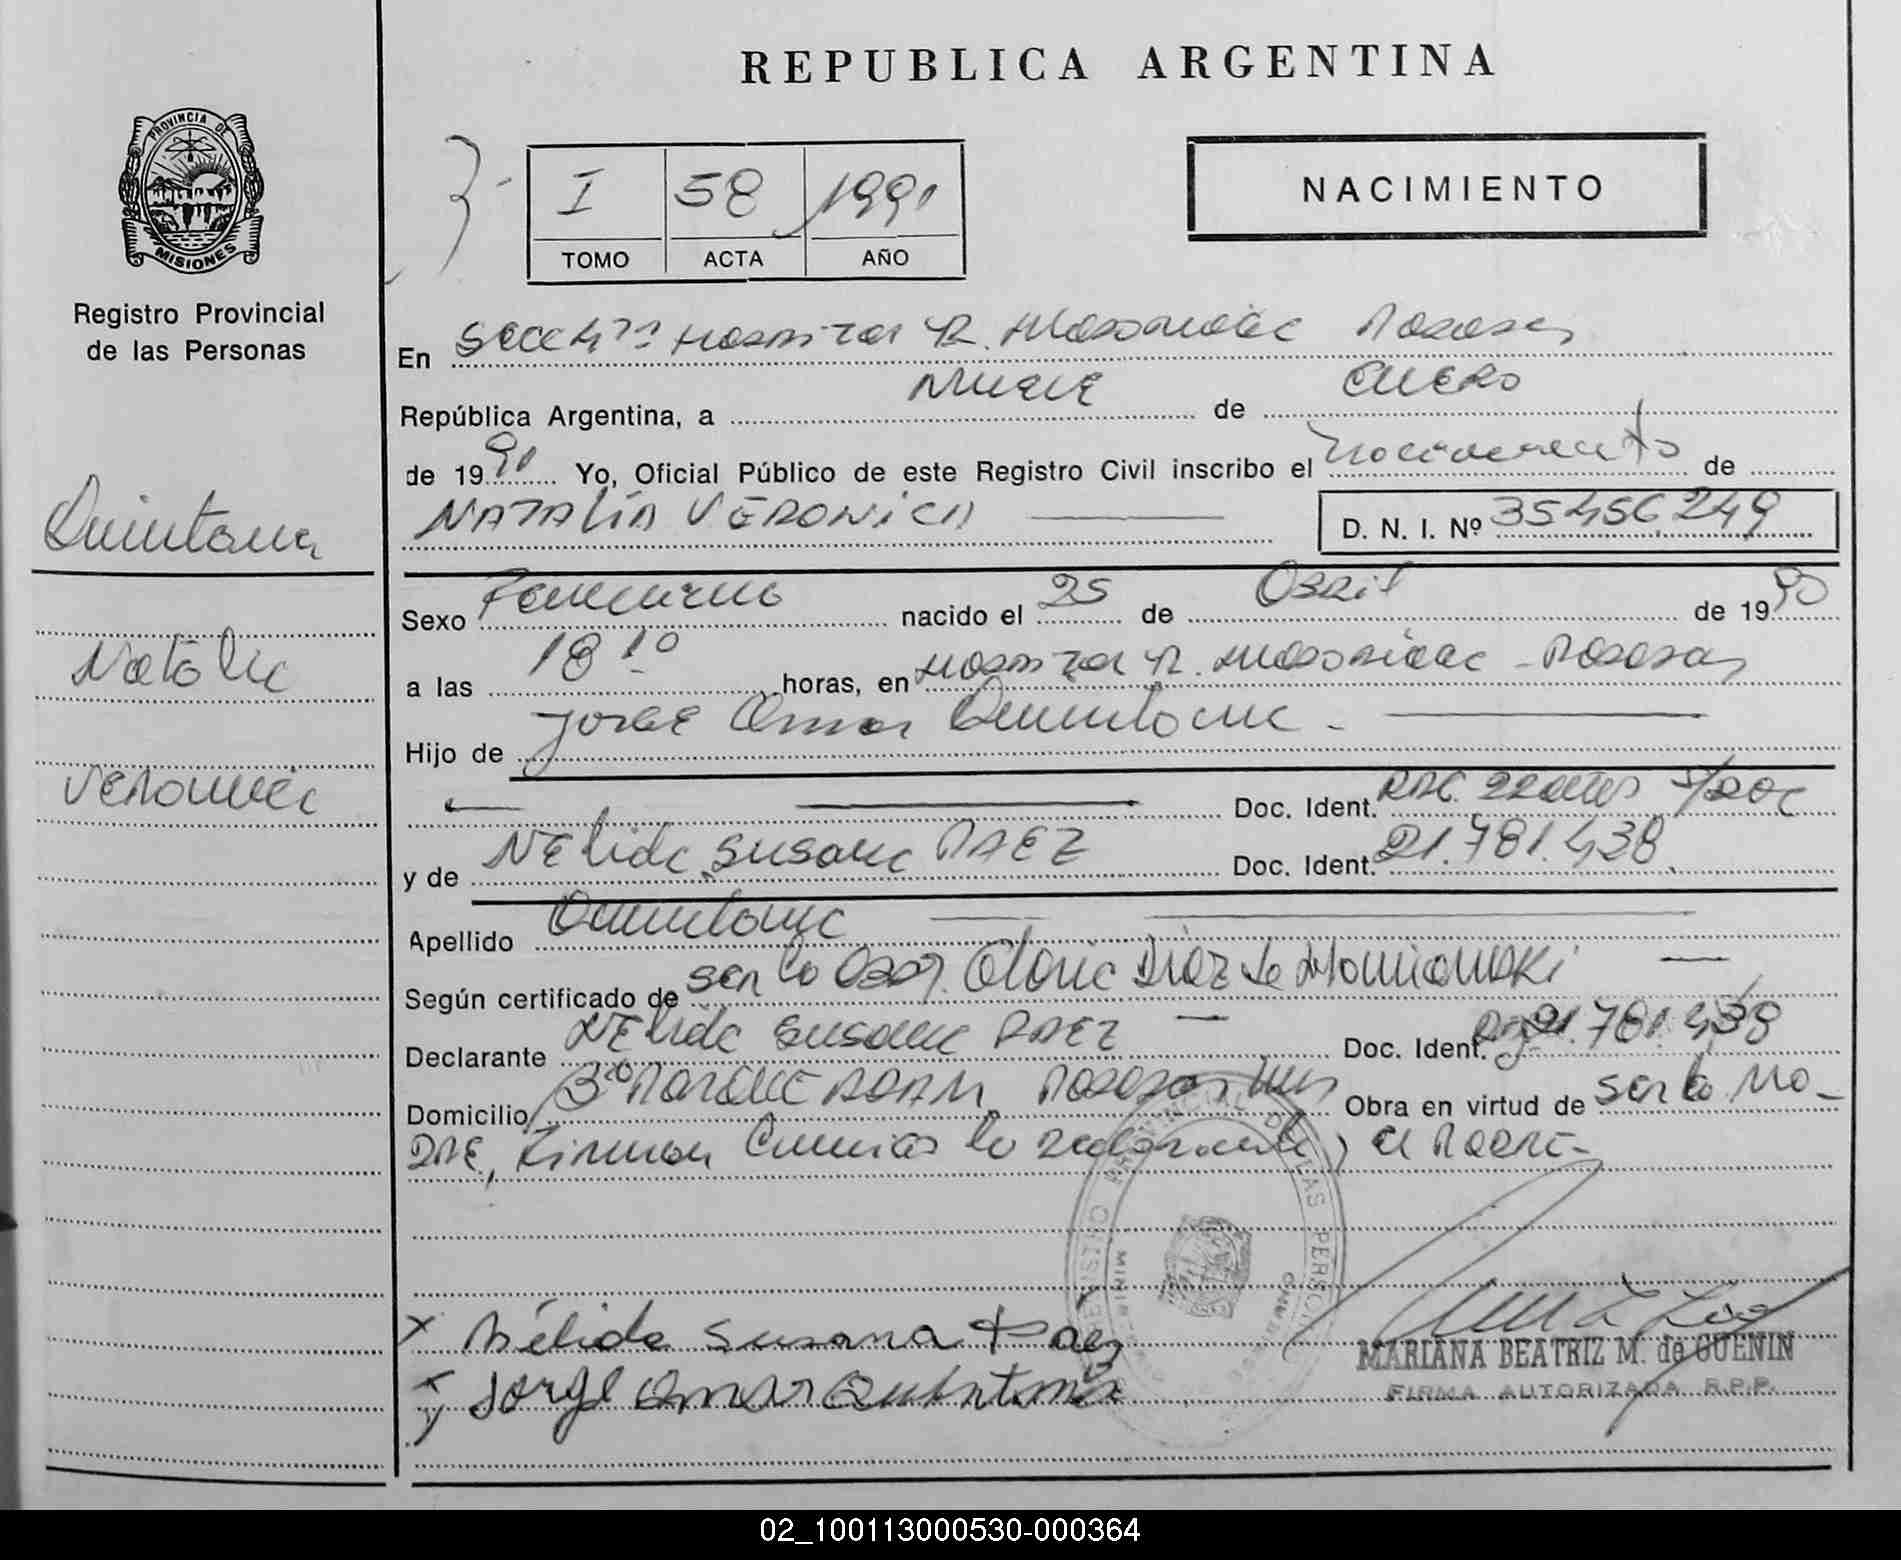 REPUBLICA ARGENTINA
PROVINCIA DE
MISIONES
Registro Provincial
de las Personas
I 58 1991
TOMO ACTA AÑO
NACIMIENTO
En Secc 4ta Hospital R. Madariaga Posadas
República Argentina, a Nueve de Enero
de 1991 Yo, Oficial Público de este Registro Civil inscribo el Nacimiento de
NATALIA VERONICA
D. N. I. Nº 35456249
Quintana
Natalia
Veronica
Sexo Femenino nacido el 25 de Abril de 1990
a las 18 10 horas, en Hospital R. Madariaga - Posadas
Hijo de Jorge Omar Quintana -
Doc. Ident. 22 años S/Doc
y de Nelida Susana PAEZ Doc. Ident. 21.781.438
Apellido Quintana
Según certificado de Diaz de
Declarante Nelida Susana PAEZ - Doc. Ident. 21.781.438
Domicilio Bº Posadas Mns Obra en virtud de ser la Ma-
dre, Firman la declarante y el Padre-
REGISTRO PROVINCIAL DE LAS PERSONAS
x Nélida Susana Paez
x Jorge Omar Quintana
MARIANA BEATRIZ M. de GUENIN
FIRMA AUTORIZADA R.P.P.
02_100113000530-000364